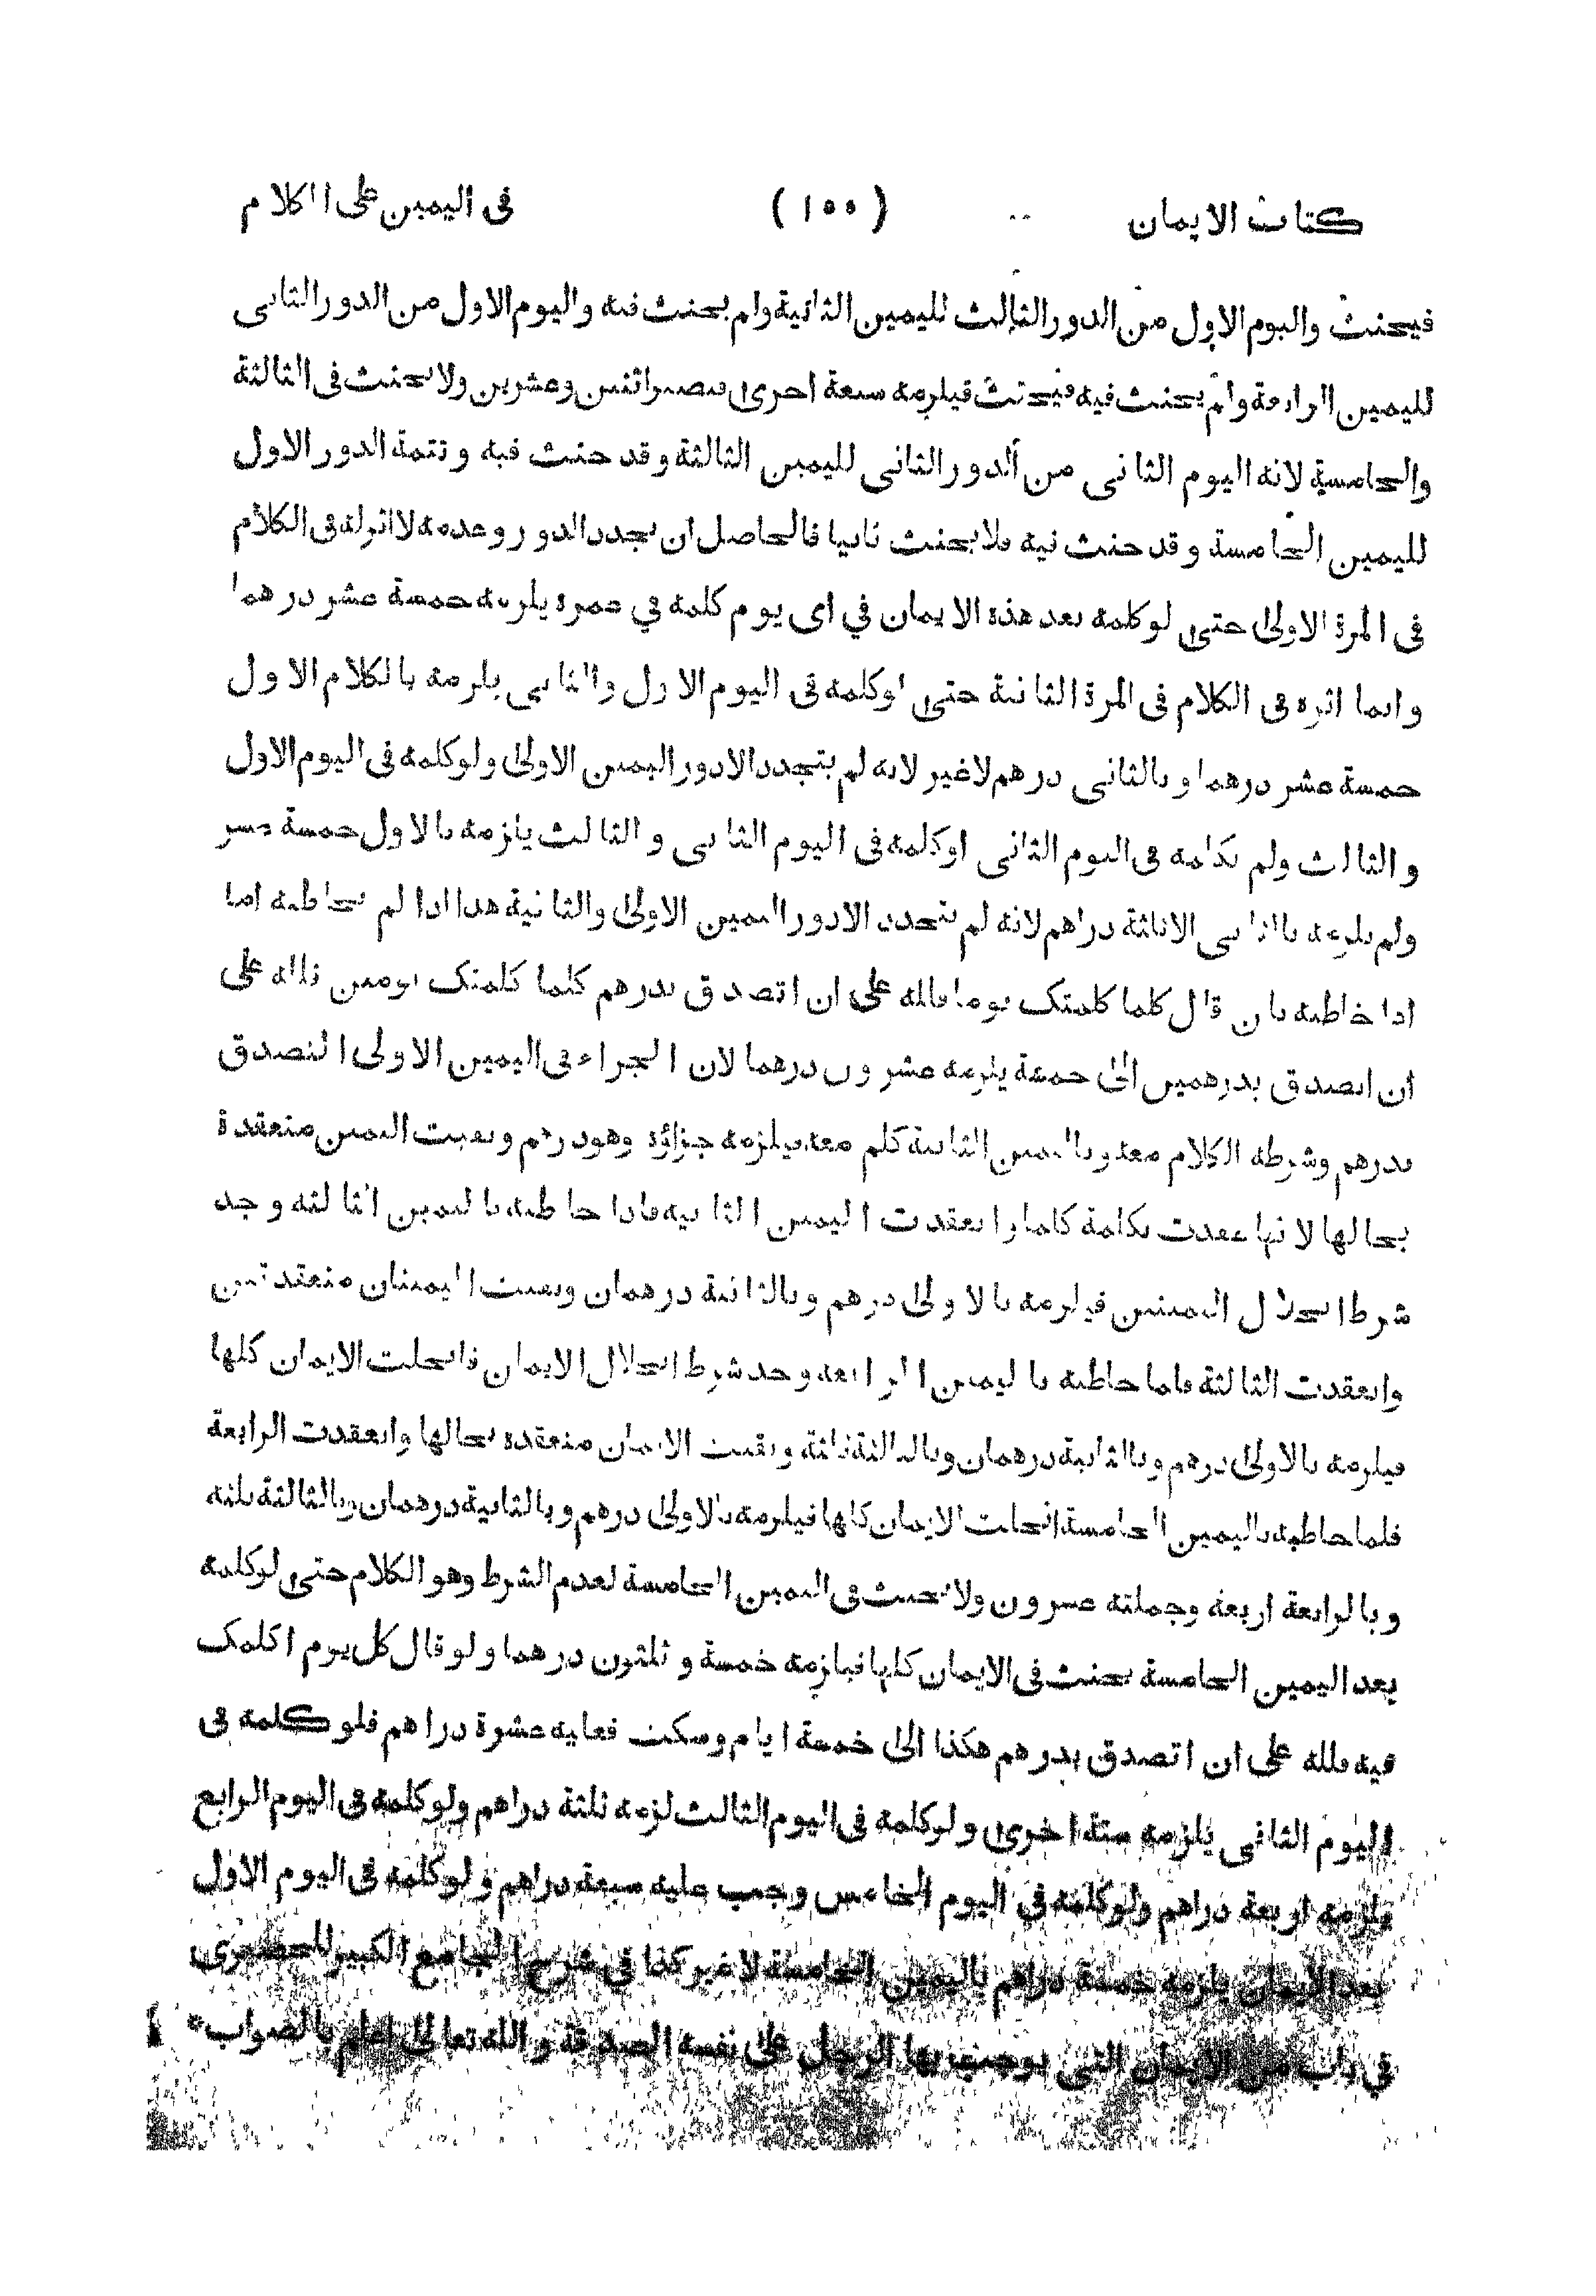 كتاب الايمان (١٥٥) فى اليمين على الكلام
فيحنث واليوم الاول من الدور الثالث لليمين الثانية ولم يحنث فيه واليوم الاول من الدور الثانى
لليمين الرابعة ولم يحنث فيه فيحنث فيلزمه سبعة اخرى فيصير اثنين وعشرين ولا يحنث فى الثالثة
والخامسة لانه اليوم الثانى من الدور الثانى لليمين الثالثة وقد حنث فيه وتتمة الدور الاول
لليمين الخامسة وقد حنث فيه فلا يحنث ثانيا فالحاصل ان تجدد الدور وعدمه لا اثر له فى الكلام
فى المرة الاولى حتى لو كلمه بعد هذه الايمان في اى يوم كلمه في عمره يلزمه خمسة عشر درهما
وانما اثره فى الكلام فى المرة الثانية حتى لو كلمه فى اليوم الاول والثانى يلزمه بالكلام الاول
خمسة عشر درهما وبالثانى درهم لا غير لانه لم يتجدد الا دور اليمين الاولى ولو كلمه فى اليوم الاول
والثالث ولم يكلمه فى اليوم الثانى او كلمه فى اليوم الثانى والثالث يلزمه بالاول خمسة عشر
ولم يلزمه بالثانى الا ثلثة دراهم لانه لم يتجدد الا دور اليمين الاولى والثانية هذا اذا لم يخاطبه اما
اذا خاطبه بان قال كلما كلمتك يوما فلله على ان اتصدق بدرهم كلما كلمتك يومين فلله على
ان اتصدق بدرهمين الى خمسة يلزمه عشرون درهما لان الجزاء فى اليمين الاولى التصدق
بدرهم وشرطه الكلام معه وباليمين الثانية كلم معه فيلزمه جزاؤه وهو درهم وبقيت اليمين منعقدة
بحالها لانها عقدت بكلمة كلما وانعقدت اليمين الثانيه فاذا خاطبه باليمين الثالثه وجد
شرط انحلال اليمينين فيلزمه بالاولى درهم وبالثانية درهمان وبقيت اليمينان منعقدتين
وانعقدت الثالثة فلما خاطبه باليمين الرابعه وجد شرط انحلال الايمان فانحلت الايمان كلها
فيلزمه بالاولى درهم وبالثانية درهمان وبالثالثة ثلثة وبقيت الايمان منعقده بحالها وانعقدت الرابعة
فلما خاطبه باليمين الخامسة انحلت الايمان كلها فيلزمه بالاولى درهم وبالثانية درهمان وبالثالثة ثلثه
وبالرابعة اربعة وجملته عشرون ولا يحنث فى اليمين الخامسة لعدم الشرط وهو الكلام حتى لو كلمه
بعد اليمين الخامسة يحنث فى الايمان كلها فيلزمه خمسة وثلثون درهما ولو قال كل يوم اكلمك
فيه فلله على ان اتصدق بدرهم هكذا الى خمسة ايام وسكت فعليه عشرة دراهم فلو كلمه فى
اليوم الثانى يلزمه ستة اخرى ولو كلمه فى اليوم الثالث لزمه ثلثة دراهم ولو كلمه فى اليوم الرابع
يلزمه اربعة دراهم ولو كلمه في اليوم الخامس وجب عليه سبعة دراهم ولو كلمه فى اليوم الاول
بعد الايمان يلزمه خمسة دراهم باليمين الخامسة لا غير كذا في شرح الجامع الكبير للحصيرى
في باب من الايمان التى يوجب بها الرجل على نفسه الصدقة والله تعالى اعلم بالصواب *